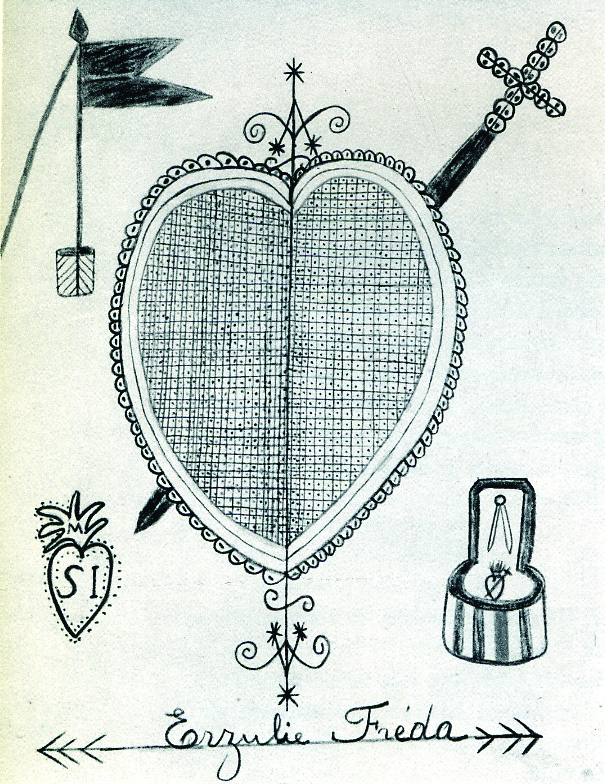 M
SI
Erzulie Fréda